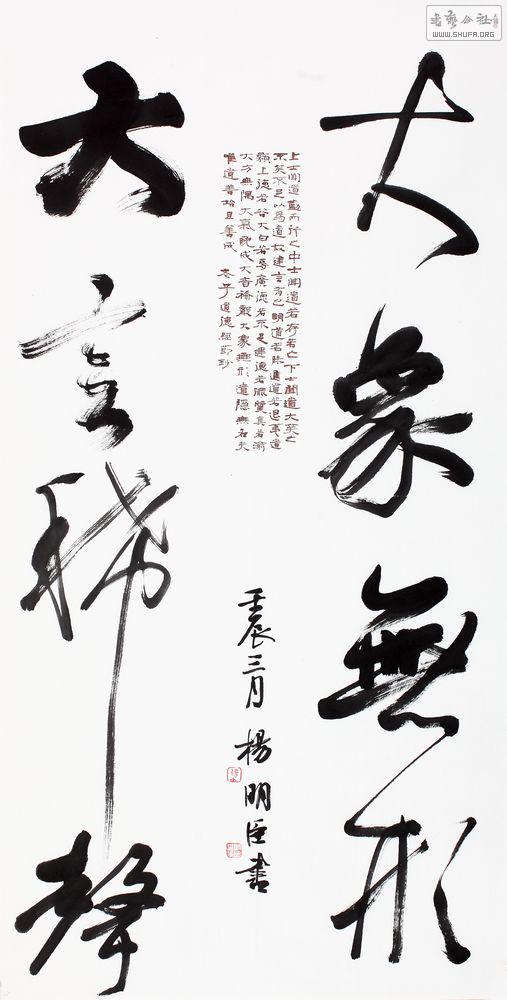 書藝公社
WWW.SHUFA.ORG
大象無形
上士聞道勤而行之中士聞道若存若亡下士聞道大笑之
不笑不足以為道故建言有之明道若昧進道若退夷道
纇上德若谷大白若辱廣德若不足建德若偷質真若渝
大方無隅大器晚成大音稀聲大象無形道隱無名夫
唯道善始且善成 老子道德經節抄
壬辰三月 楊明臣書
大音稀聲